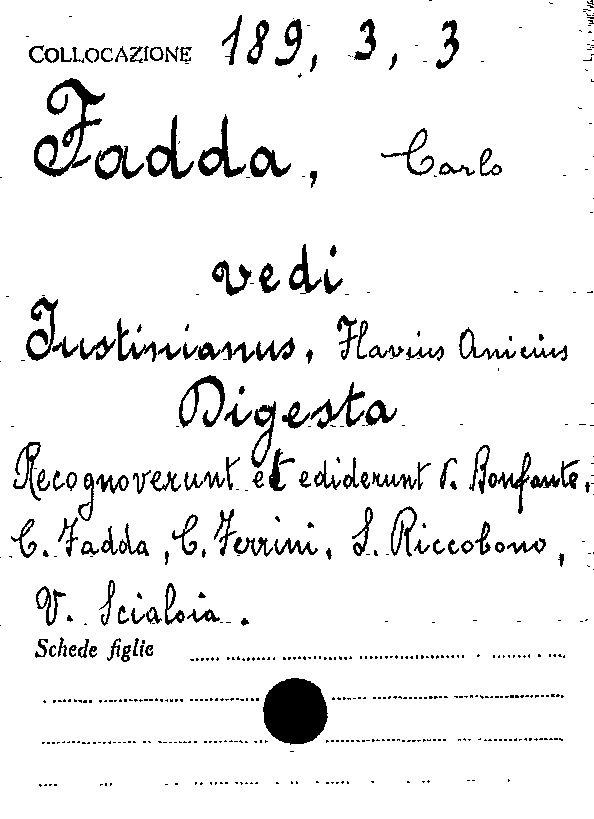 COLLOCAZIONE 189, 3, 3
Fadda, Carlo
vedi
Justinianus, Flavius Anicius
Digesta
Recognoverunt et ediderunt P. Bonfante,
C. Fadda, C. Ferrini, S. Riccobono,
V. Scialoia.
Schede figlie